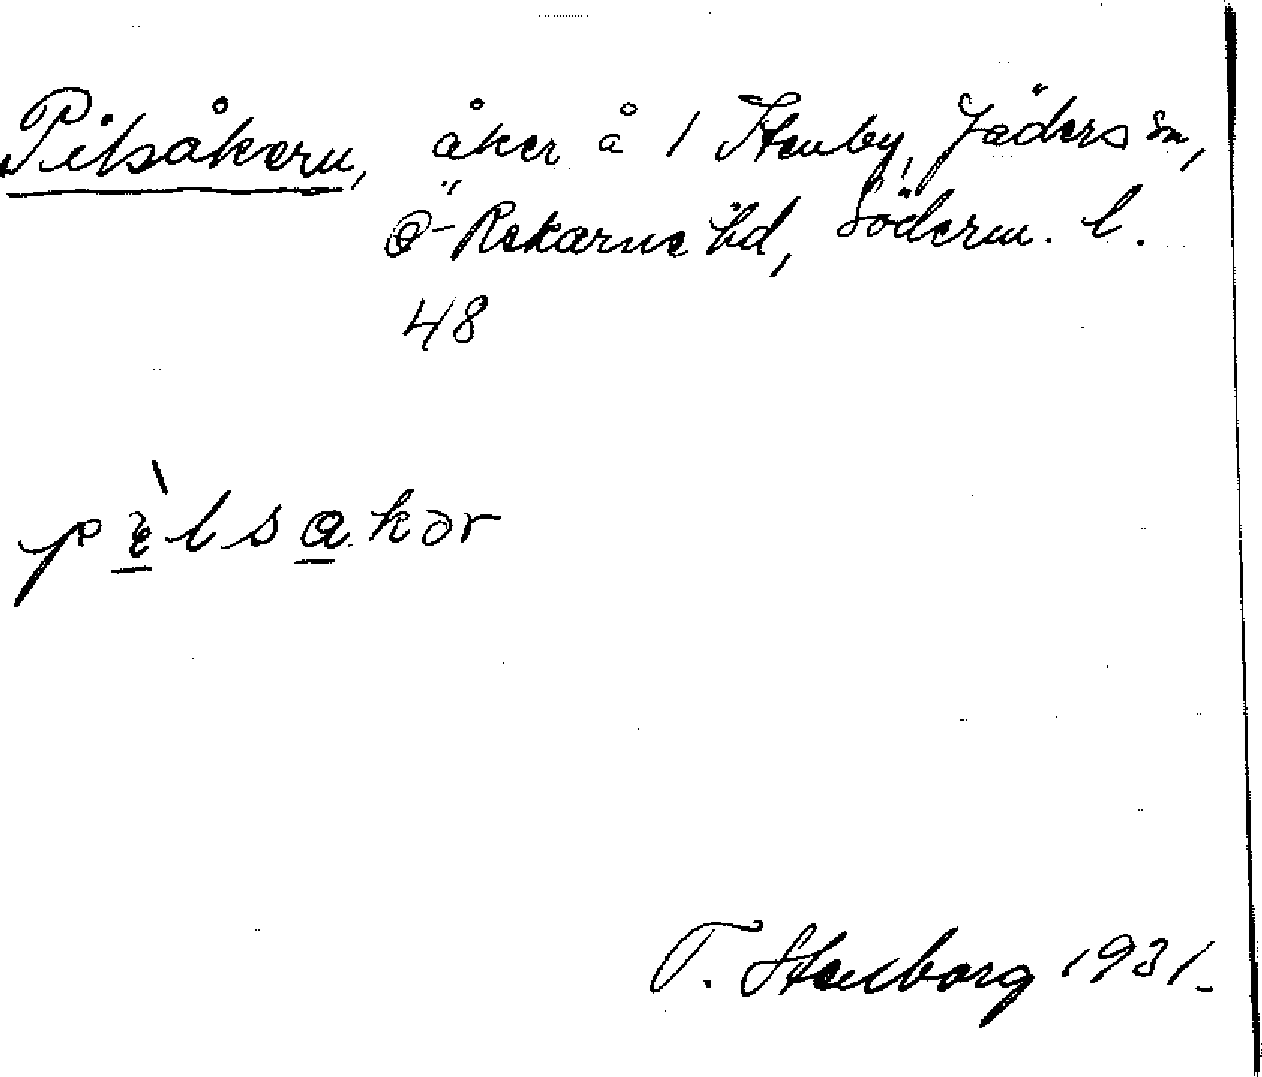 Pilsåkern, åker å 1 Stenby, Jäders sn,
Ö-Rekarne hd, Söderm. l.
48
pìlsakər
T. Stenborg 1931.